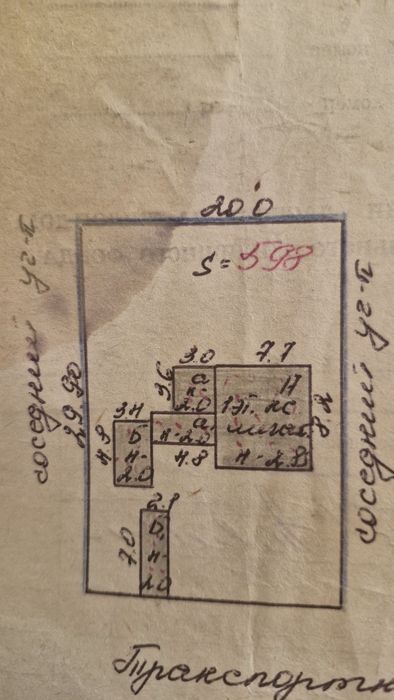 20.0
S = 598
соседний уч-к
29.90
3.0
7.7
3.6
а
н-
2.0
Н
1эт. жс
н-2.8
8.2
3.4
Б
н-
2.0
4.8
а
н-2.0
4.8
7.0
Б
н-
2.0
соседний уч-к
Транспортн